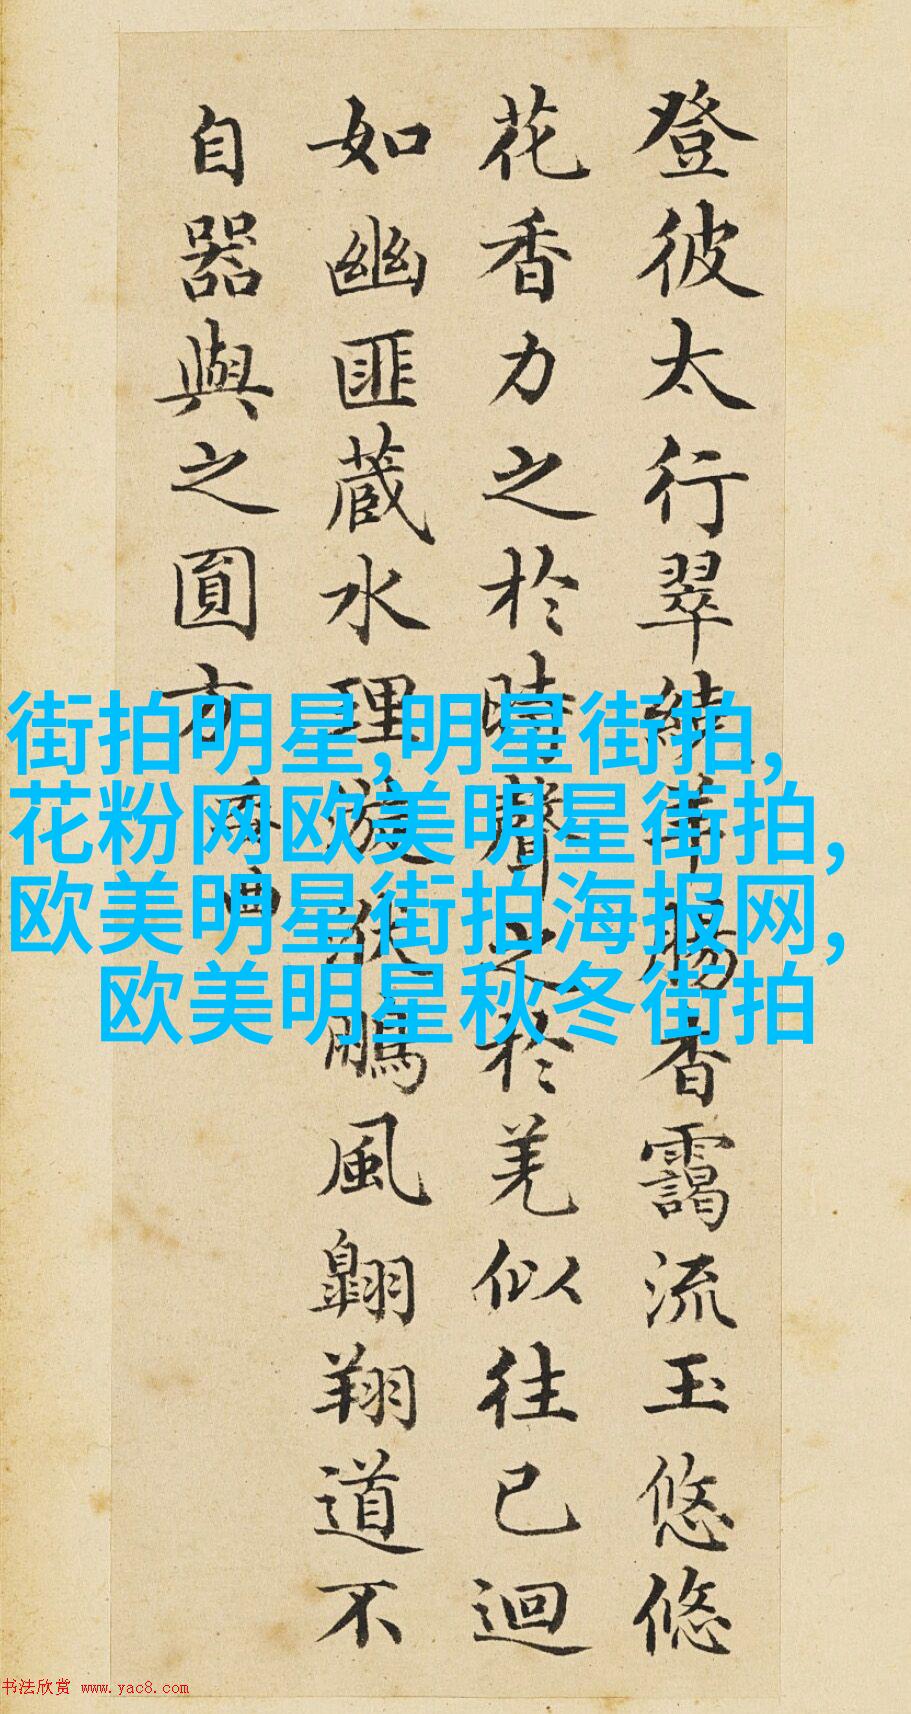 登彼太行翠繞羊腸香靄流玉悠悠
花香力之於時聲之於羌似往已迴
如幽匪藏水理漩洑鵬風翺翔道不
自器與之圓方 委曲
街拍明星,明星街拍,
花粉网欧美明星街拍,
欧美明星街拍海报网,
欧美明星秋冬街拍
书法欣赏 www.yac8.com